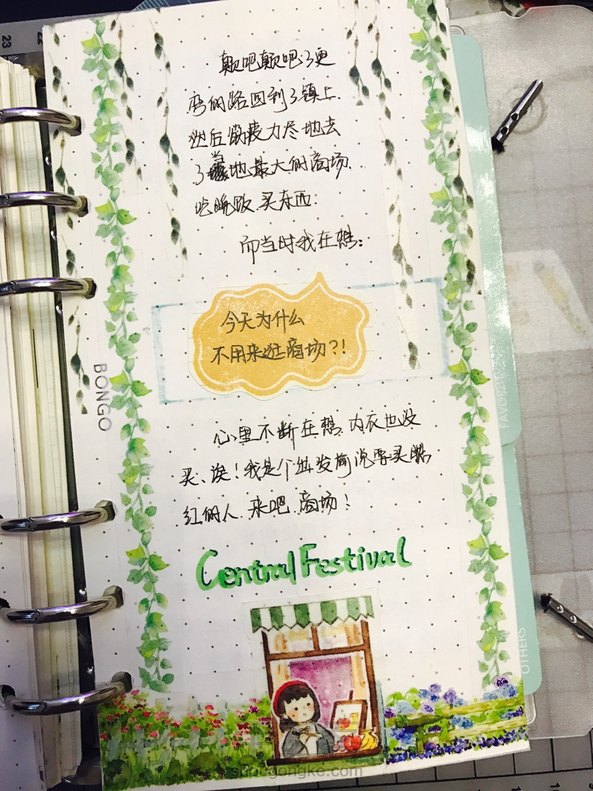 颠吧颠吧了更
弯的路回到了镇上
然后筋疲力尽地去
了当地最大的商场
吃晚饭 买东西.
而当时我在想:
今天为什么
不用来逛商场?!
心里不断在想, 内衣也没
买, 诶! 我是个出发前说要买眼
红的人, 来吧, 商场!
Central Festival
BONGO
FAVOR
OTHERS
22
23